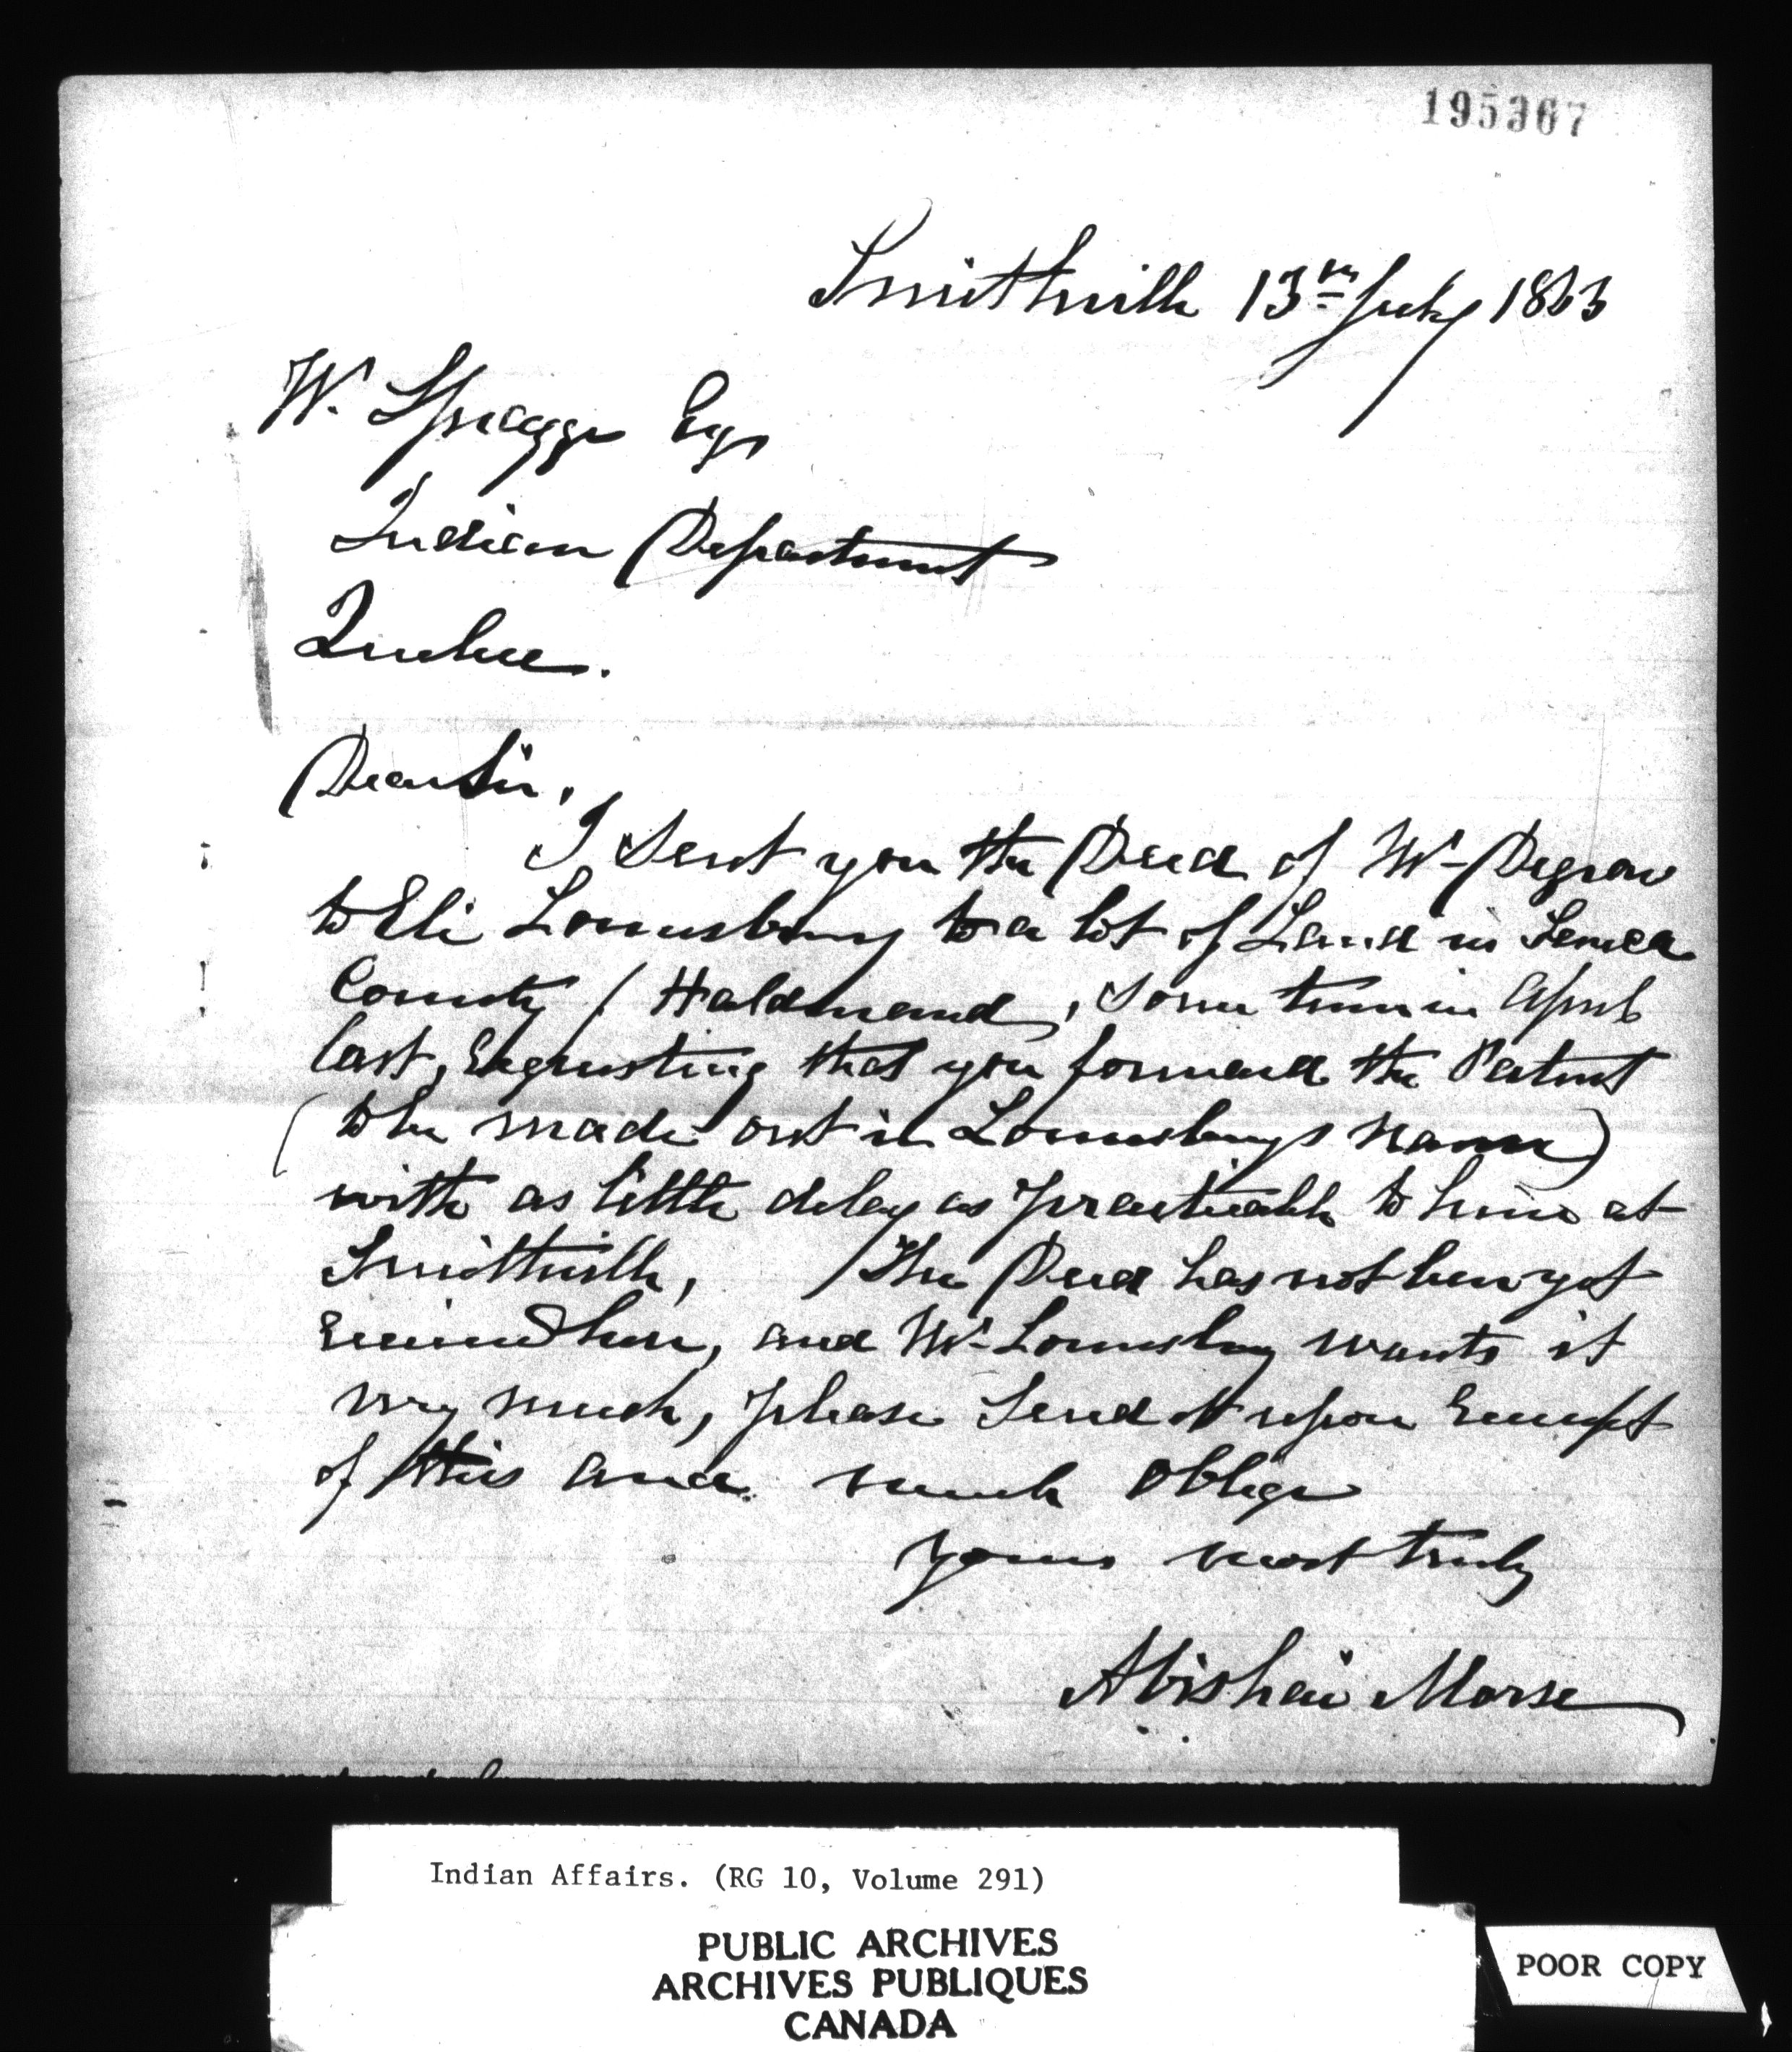 195367
Smithville 13th July 1863
W. Spragge Esqr
Indian Department
Quebec.
Dear Sir,
I Sent you the Deed of Mr Degrow
to Eli Lounsbury to a lot of Land in Seneca
County Haldimand, Some time in April
last, Requesting that you forward the Patent
(to be made out in Lounsburys name)
with as little delay as practicable to him at
Smithville, The Deed has not been yet
Received here, and Mr Lounsbury wants it
very much, please Send it upon Receipt
of this and much Oblige
yours most truly
Abishai Morse
Indian Affairs. (RG 10, Volume 291)
PUBLIC ARCHIVES
ARCHIVES PUBLIQUES
CANADA
POOR COPY